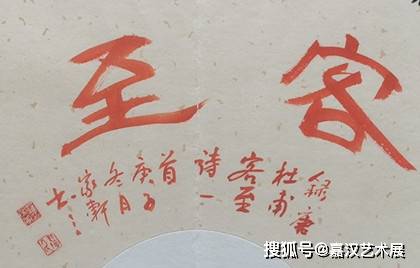 客至
錄唐
杜甫
客至
诗一
首
庚子
冬月
家轩
书之
搜狐号@嘉汉艺术展